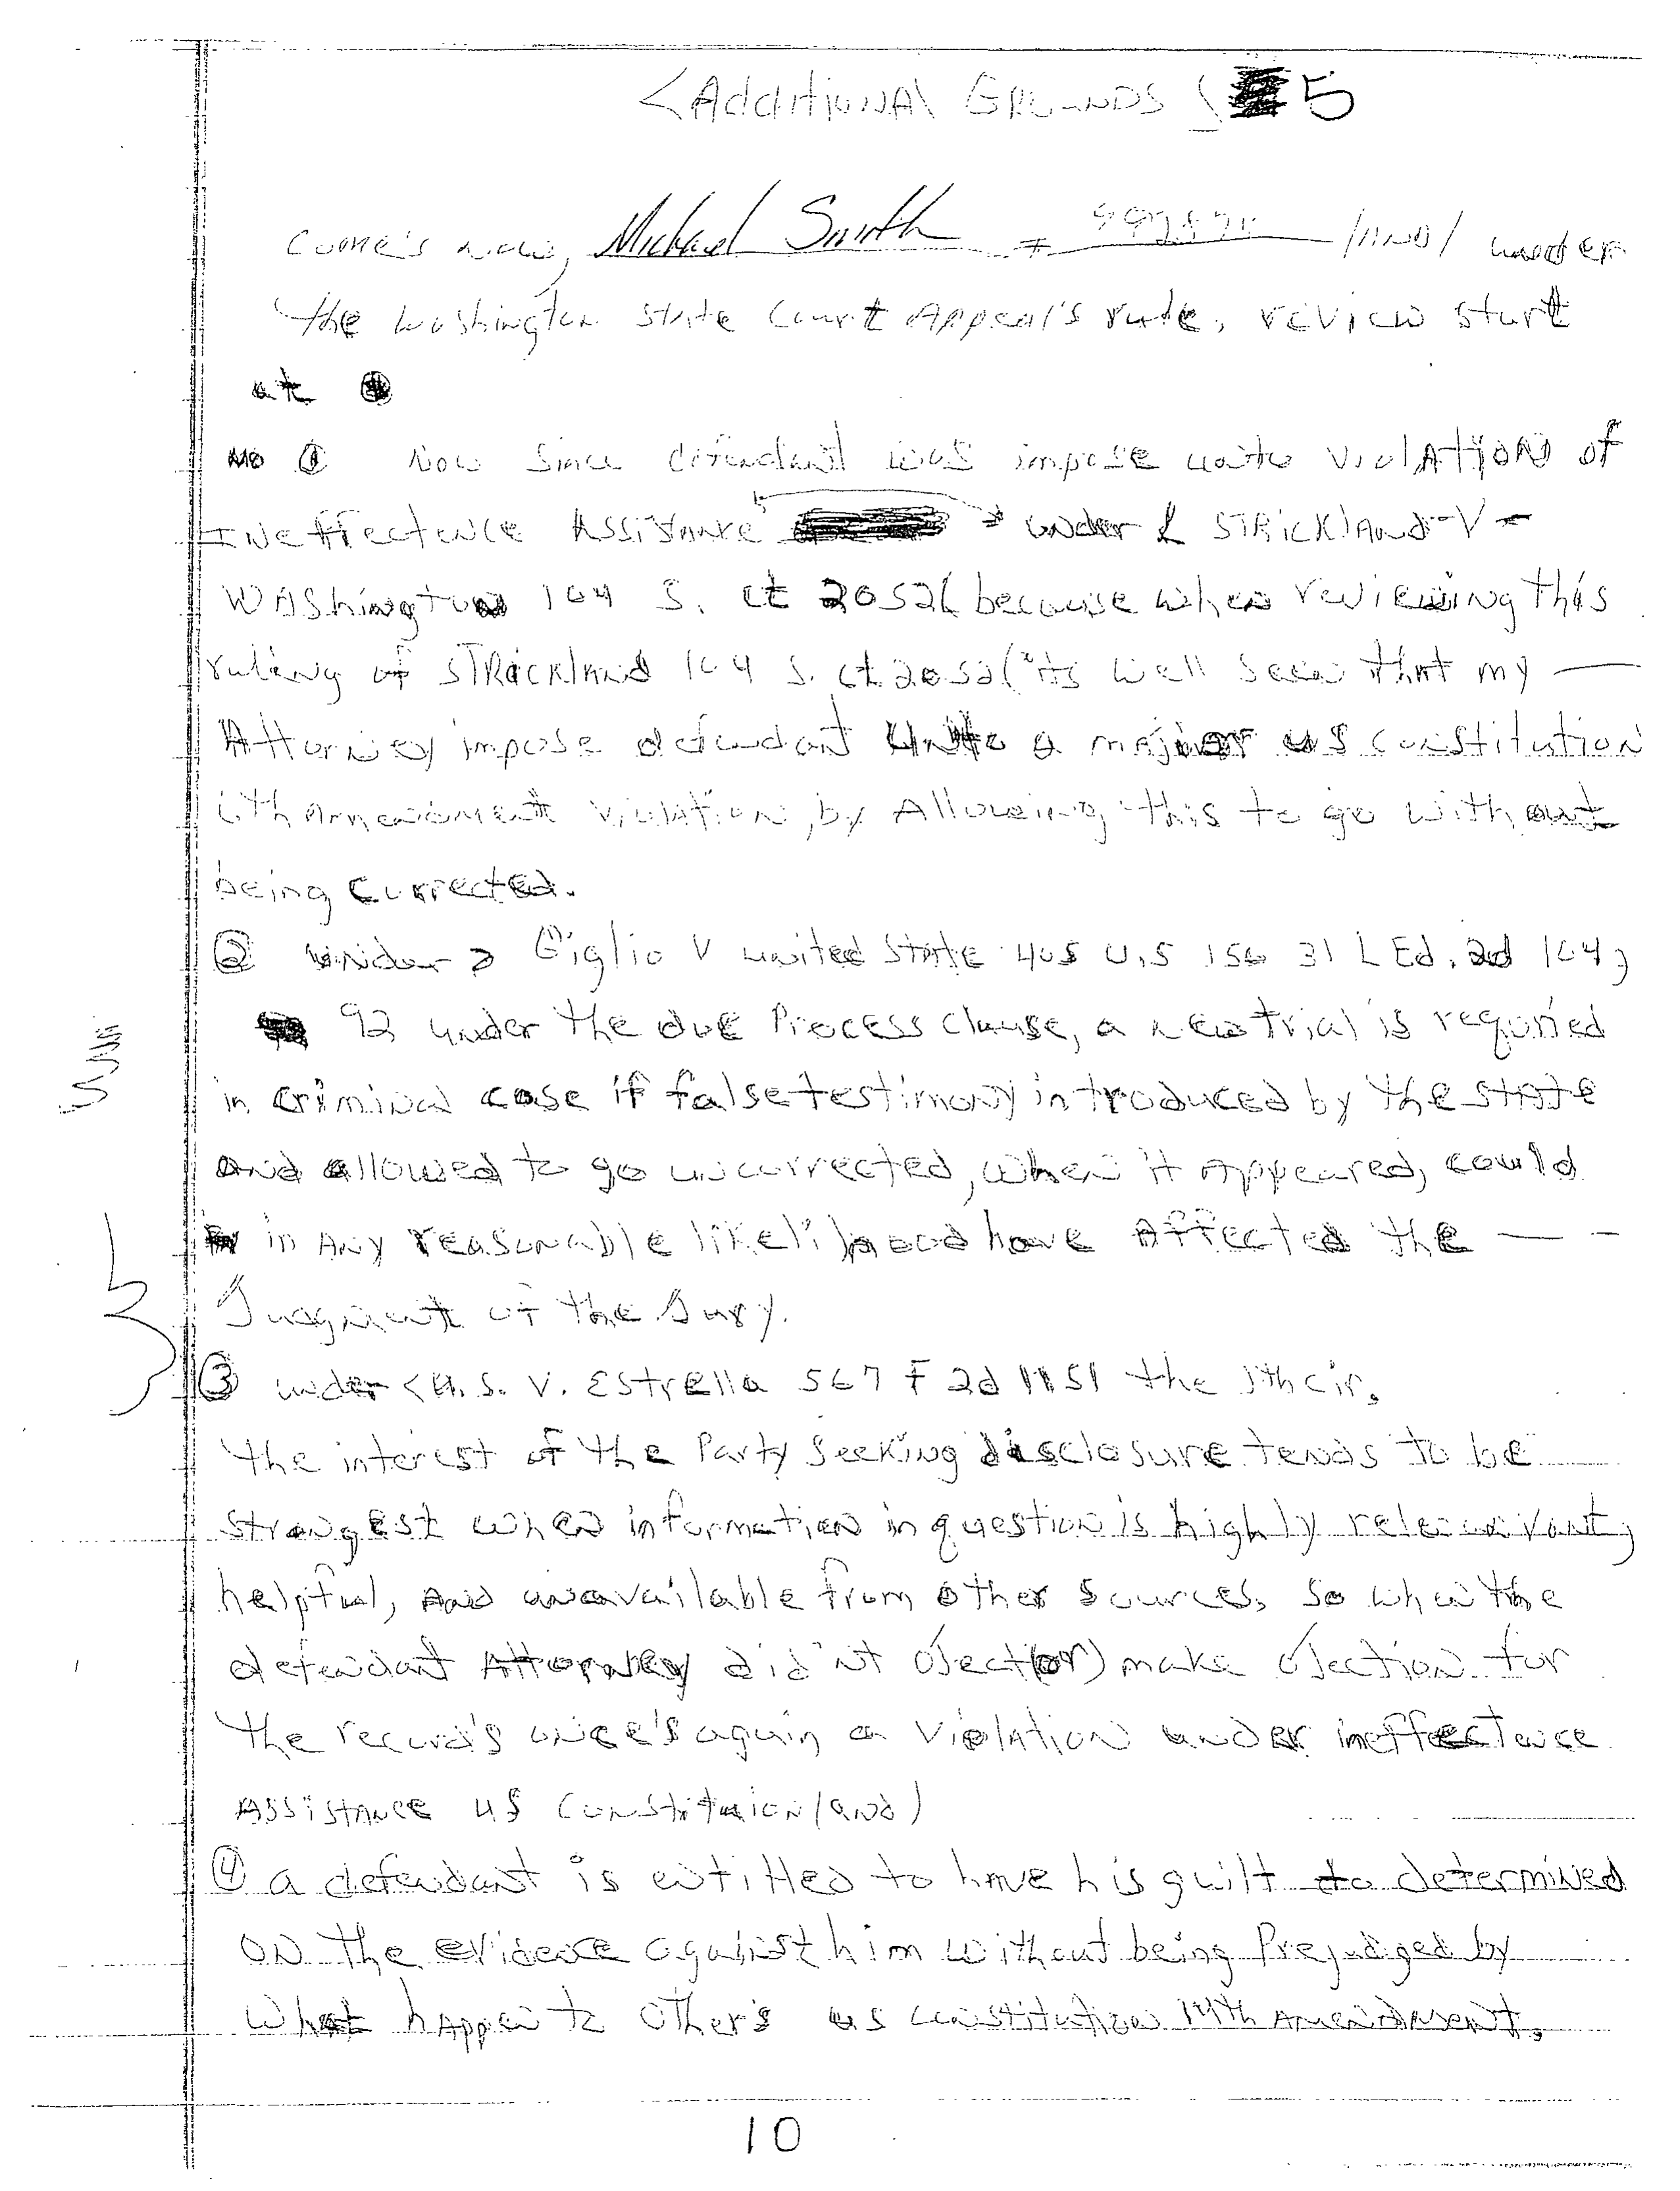 <Additional Grounds ( 5
Come's now, Michael Smith # /AND/ under
the Washington State Court Appeal's rule, review start
at
No ① Now since defendant was impose unto violATION of
INeffectence Assistance under & STRICKlAnd -V-
WAShington 104 S. Ct 2052( because when reviewing this
ruling of STRickland 104 S. Ct 2052( "its well seen that my —
Attorney impose defendant Unto a major US constitution
6th Amendment violation, by Allowing this to go without
being corrected.
② Under > Giglio V United State 405 U.S 150 31 L Ed. 2d 104;
92 under the due Process clause, a new trial is requried
in criminal case if false testimony introduced by the state
And allowed to go uncorrected, when it Appeared, could
in Any reasonable likelihood have Affected the — -
Judgment of the Jury.
③ under <U.S. V. Estrella 567 F 2d 1151 the 1th cir.
the interest of the Party Seeking disclosure tends to be
strongest when information in question is highly
helpful, And unavailable from other sources. so when the
defendant Attorney did'nt Oject(or) make Ojection for
the record's once's again a violation under ineffectence
Assistance US Constituion/and)
④ a defendant is entitled to have his guilt to determined
on the evidence against him without being Prejudged by
What happen to Other's us constitution 14th Amendment.
10